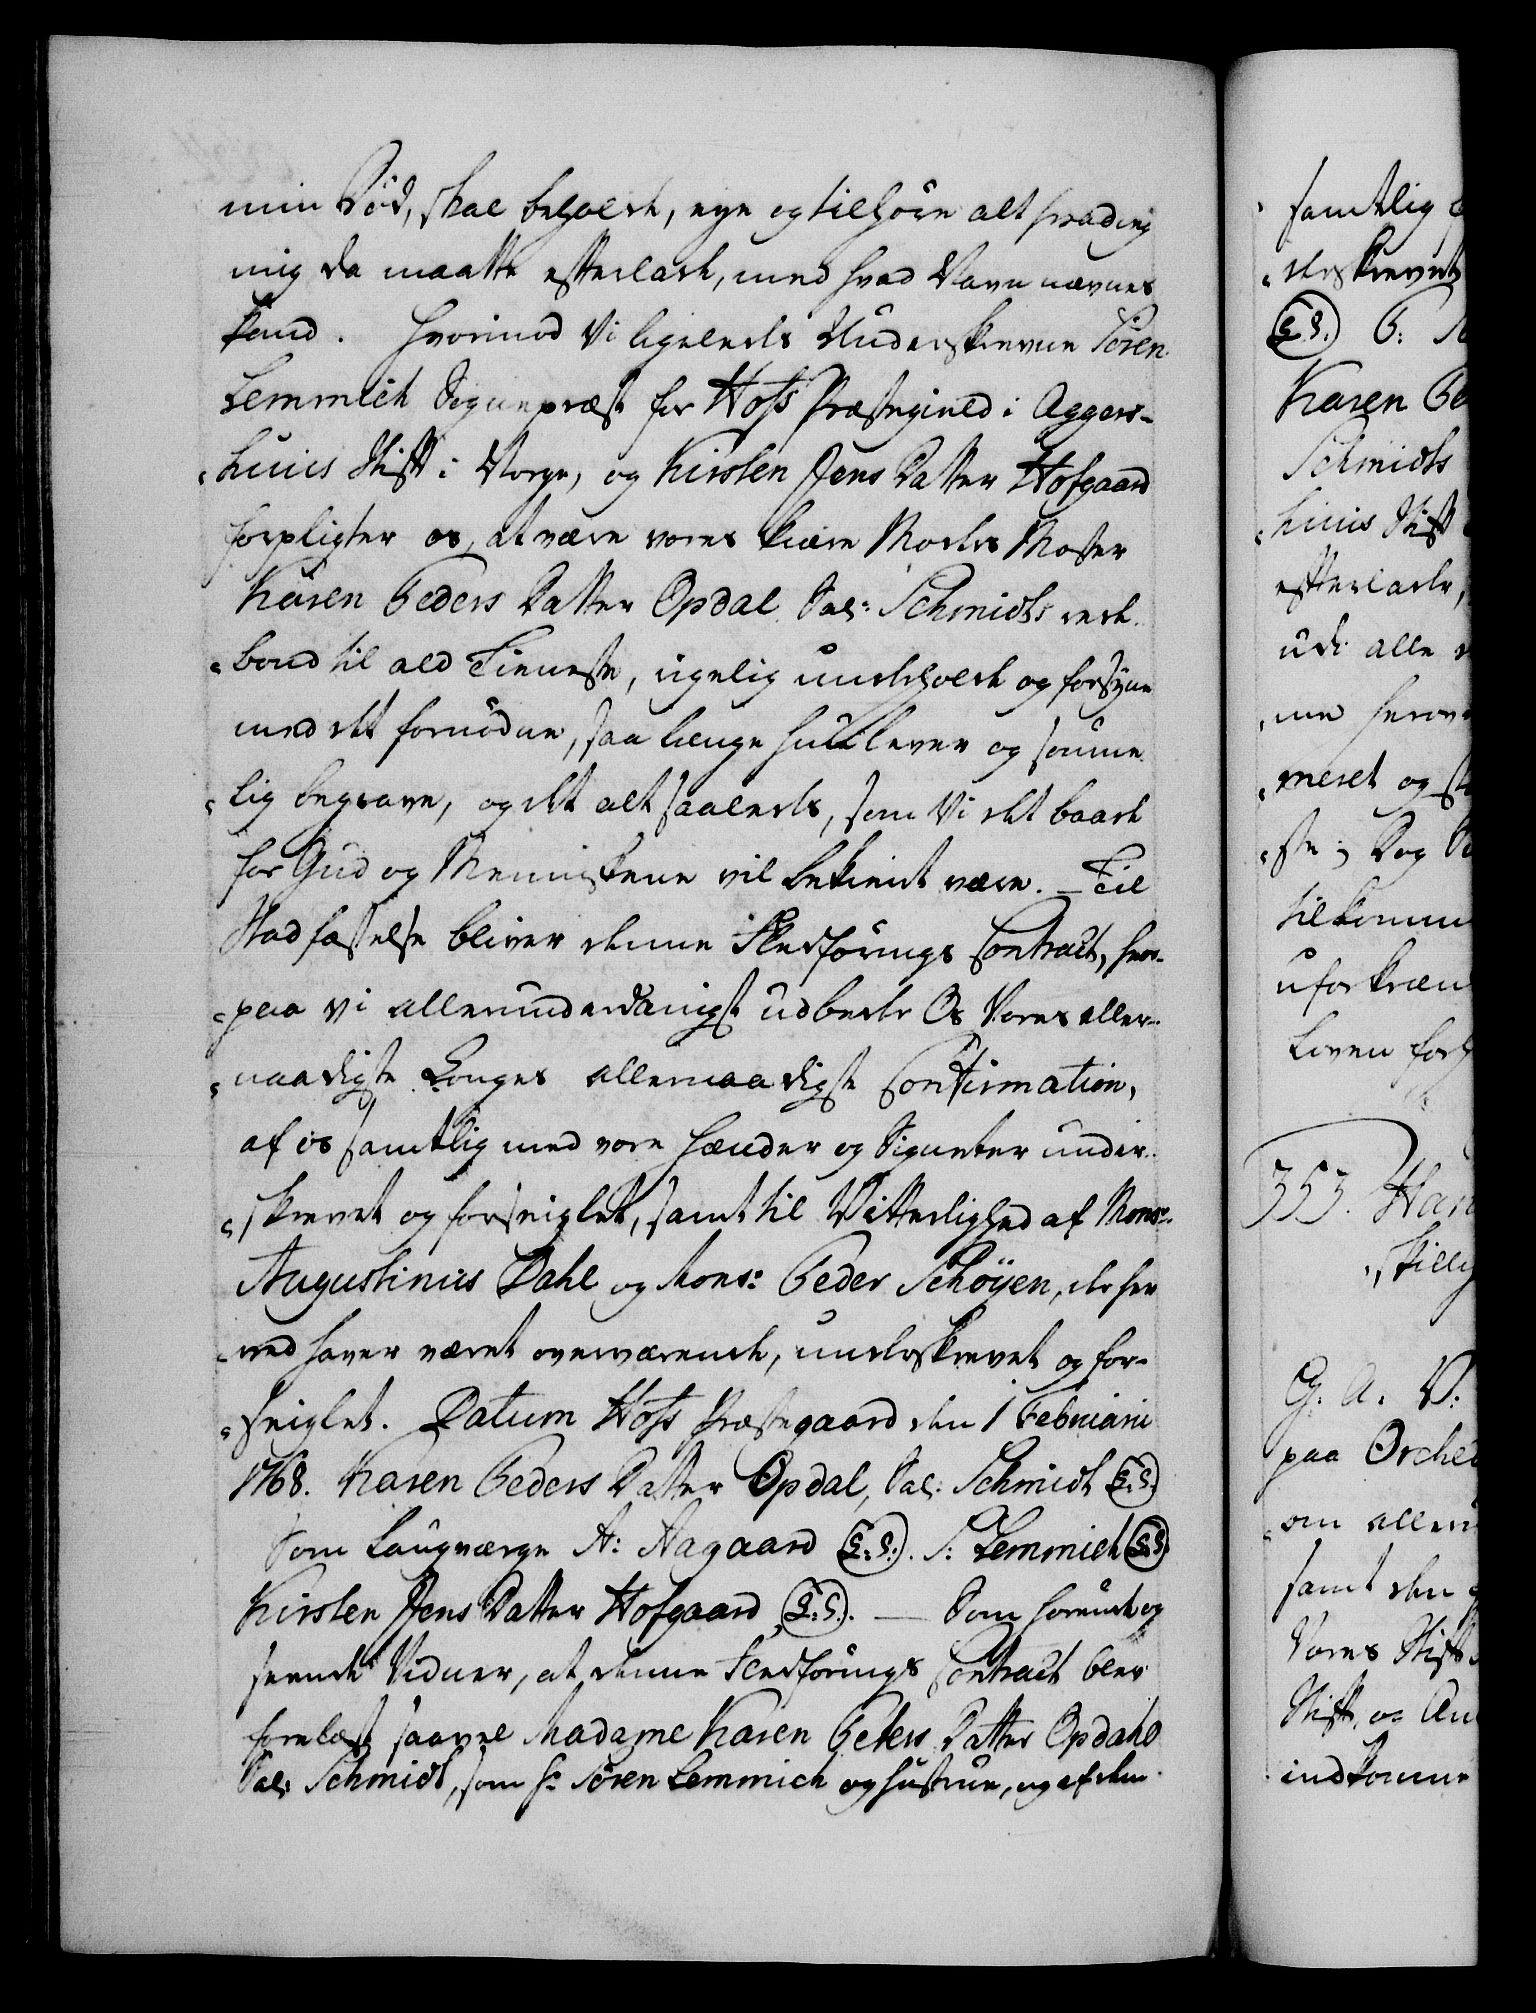 min Död, skal beholde, eye og tilhöre alt hvad ieg
mig da maatte efterlade, med hvad Navn nævnes
kand. Hvorimod Vi ligeleds Underskrevne Sören
Lemmich Sognepræst for Hofs Præstegield i Aggers-
huus Stift i Norge, og Kirsten Jens Datter Hofgaard
forpligter os, at være vores kiære Moders Moster
Karen Peders Datter Opdal Sal: Schmidts rede-
bond til ald Tieneste, rigelig underholde og forsyne
med det fornödne, saa længe hun lever og sömme-
lig begrave, og det alt saaleds, som Vi det baade
for Gud og Menniskene vil bekiendt være. — Til
Stadfæstelse bliver denne Fledförings Contract, hvor-
paa vi allerunderdanigst udbede Os Vores aller-
naadigste Konges allernaadigste Confirmation,
af os samtlig med vore Hænder og Signeter under-
skrevet og forseiglet, samt til Vitterlighed af Monsr.
Augustinus Dahl og Mons: Peder Schöyen, de her
ved haver været overværende, underskrevet og for-
seiglet. Datum Hofs Præstegaard den 1 Februarii
1768. Karen Peders Datter Opdal, Sal: Schmidt (L.S.)
Som Laugværge A: Aagaard (L:S:). S: Lemmich (L:S)
Kirsten Jens Datter Hofgaard (L:S:). — Som hörende og
seende Vidner, at denne Fledförings Contract blev
forelæst saavel Madame Karen Peders Datter Opdahl
Sal: Schmidt, som Hr. Sören Lemmich og Hustrue, og af dem
samtlig
derskrevet
(L.S.) P:
Karen Pe
Schmidts
huus Stift
efterlade,
udi alle
me herov
meret og
ste; Dog
tilkomm
uforkræn
Loven for
353.
skilly
G. A. V:
paa Orche
om allern
samt den
Vores Stift
Stift, og
indkomne